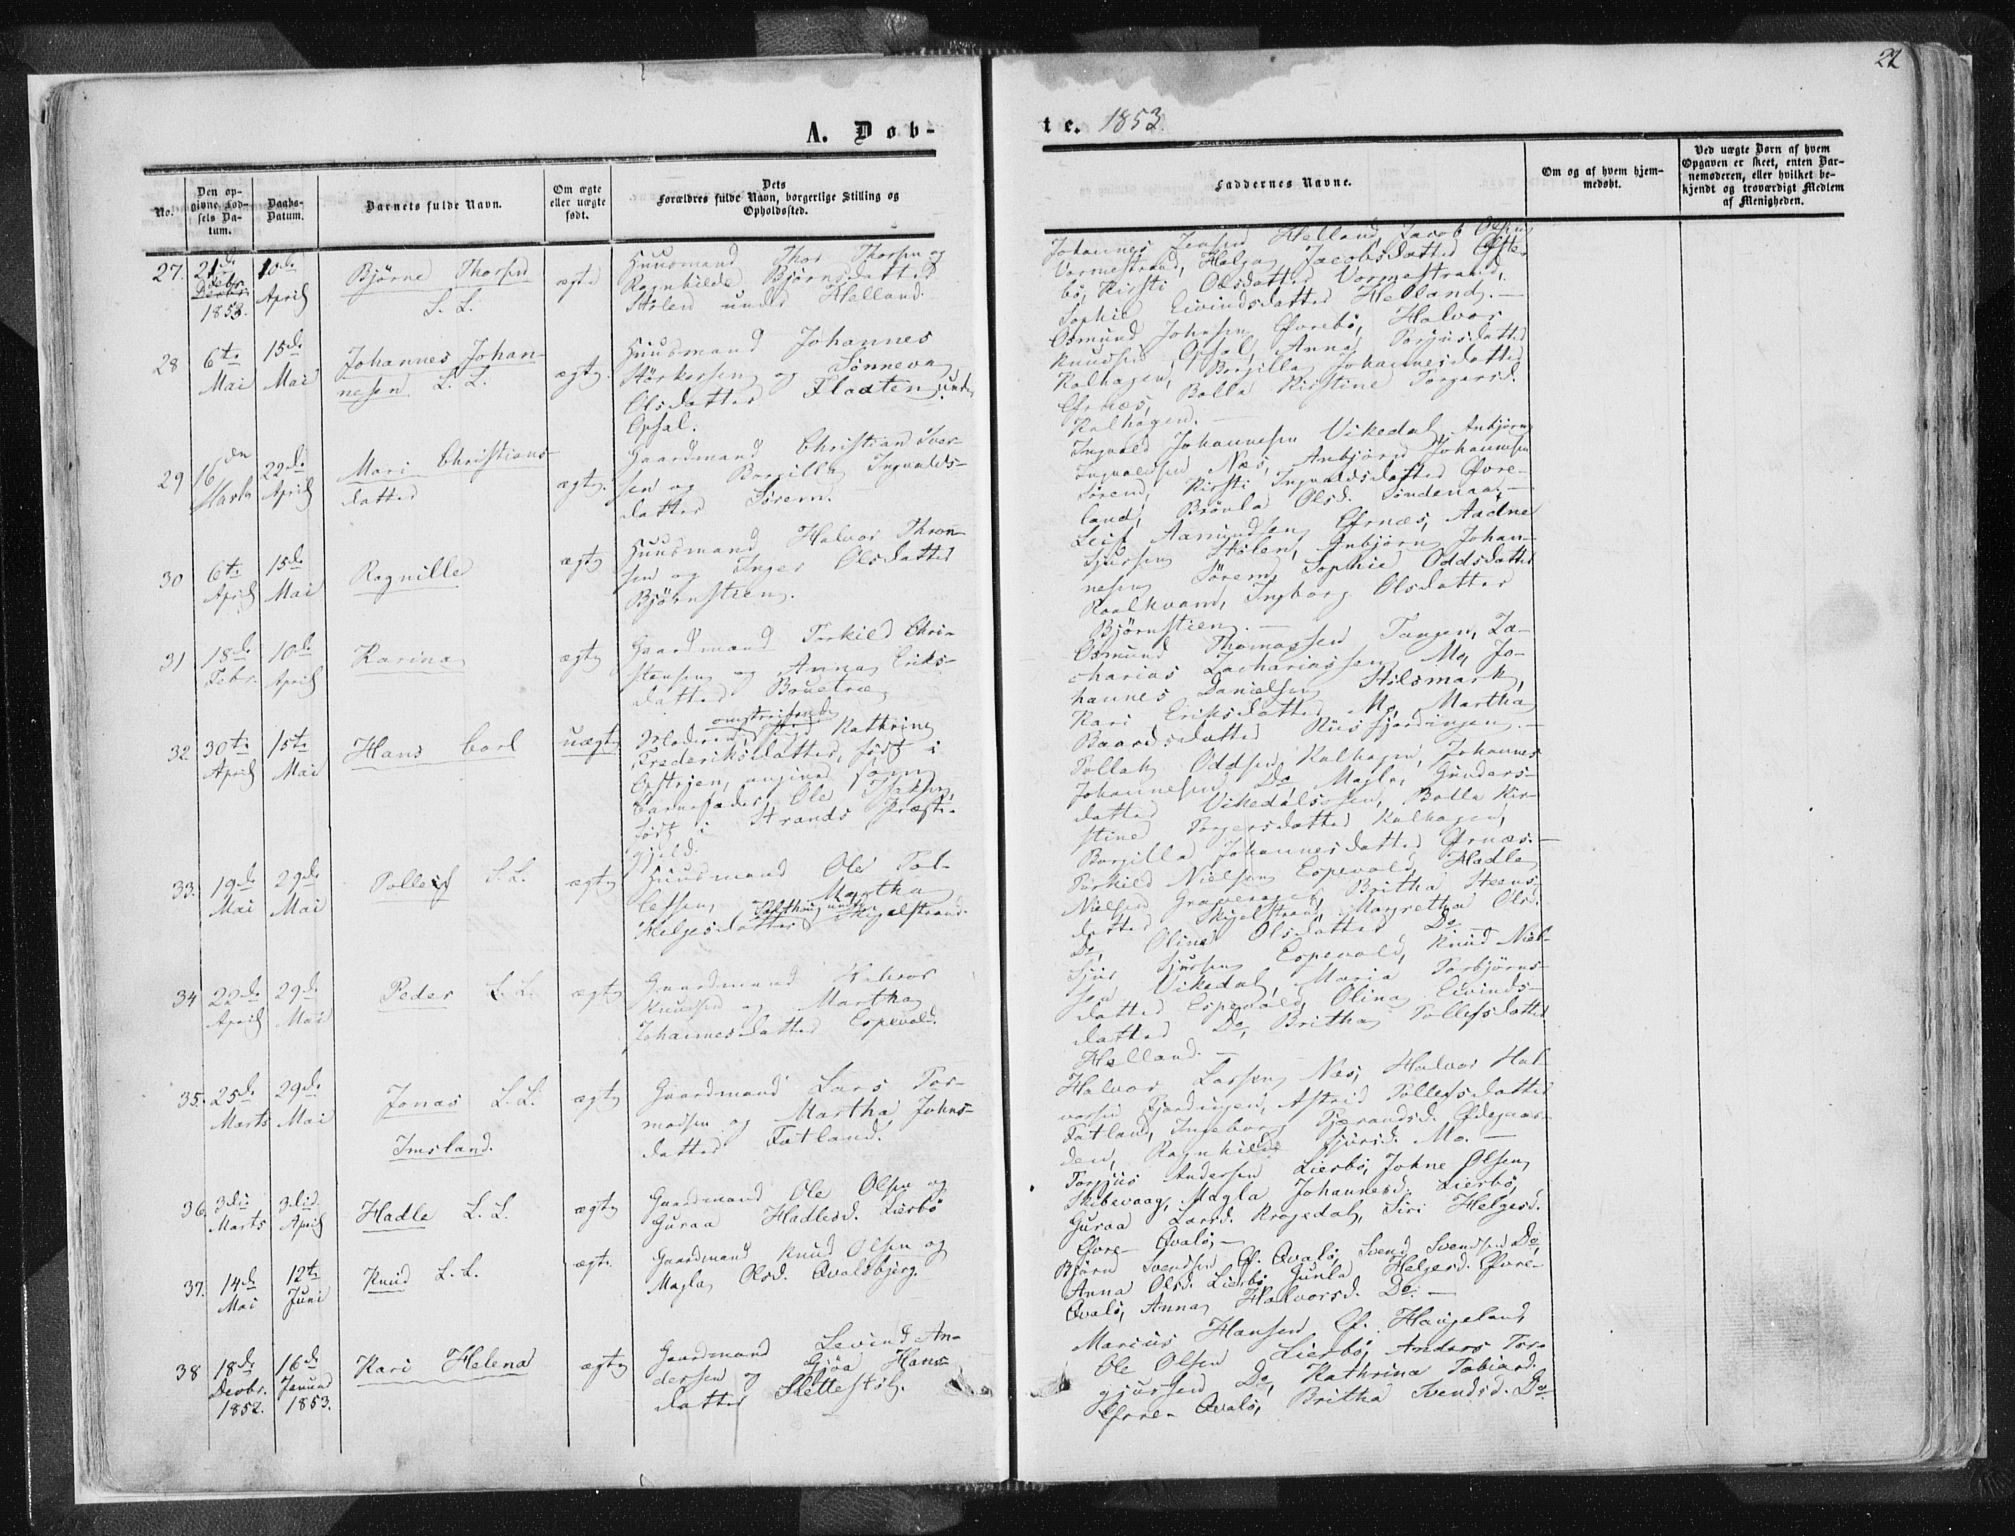 22
A. Døb-
te. 1853.
No.
Den op-
givne Fød-
sels Da-
tum.
Daabs-
Datum.
Barnets fulde Navn.
Om ægte
eller uægte
født.
Dets
Forældres fulde Navn, borgerlige Stilling og
Opholdssted.
Faddernes Navne.
Om og af hvem hjem-
medøbt.
Ved uægte Børn af hvem
Opgaven er skeet, enten Bar-
nemoderen, eller hvilket be-
kjendt og troværdigt Medlem
af Menigheden.
27.
21de
Febr.
1853.
10de
April
Bjørne Thorsen
L. L.
ægte
Huusmand Thor Thorsen og
Ragnhilde Bjørnsdatter
Stølen under Helland.
Johannes Jensen Helland, Jacob Olsen
Vormestrand, Helga Jacobsdatter Øfte
bø, Kirsti Olsdatter Vormestrand,
Sophie Eivindsdatter Helland. —
28
6te
Mai
15de
Mai
Johannes Johan-
nesen L. L.
ægte.
Huusmand Johannes
Størkersen og Sønneva
Olsdatter Flaaten und.
Opsal.
Osmund Johnsen Øvrebø, Halvor
Knudsen Opsal, Anna Torjusdatter
Kalhagen, Borgilla Johannesdatter
Ørnæs, Bolla Kirstine Torgersd.
Kalhagen. —
29
16den
Marts
22de
April
Mari Christians-
datter
ægte.
Gaardmand Christian Iver-
sen og Borgilla Ingvalds-
datter Sørem.
Ingvald Johannesen Vikedal, Anbjørn
Ingvaldsen Næs, Anbjørn Johannesen
Sørem, Kirsti Ingvaldsdatter Øvre-
land, Brøvla Olsd. Søndenaa. —
30
6te
April
15de
Mai
Ragnille
ægte
Huusmand Halvor Thron-
sen og Inger Olsdatter
Bjørnstien.
Leif Aamundsen Ørnæs, Aadne
Sjursen Stølen, Anbjørn Johan-
nesen Sørem, Sophie Oddsdatter
Raalkvam, Ingborg Olsdatter
Bjørnstien. —
31
18de
Febr.
10de
April
Karina
ægte
Gaardmand Torkild Chri-
stensen og Anna Eriks-
datter Bruetræ
Osmund Thomassen Tangen, Za-
charias Zachariassen Mo, Jo-
hannes Danielsen Stølsmark,
Kari Eriksdatter Mo, Martha
Baardsdatter Riisfjordingen. —
32
30te
April
15te
Mai
Hans Carl
uægte
Moderen omstreifende Kathrine
Frederiksdatter, født i
Opstrien, angiver som
Barnefader Ole Isaksen,
født i Strands Præste-
gjeld.
Tollak Oddsen Kalhagen, Johannes
Johannesen Do, Magla Gunders-
datter Vikedalsosen, Bolla Kir-
stine Torgersdatter Kalhagen,
Borgilla Johannesdatter Ørnæs. —
33.
19de
Mai
29de
Mai
Tolleif L. L.
ægte
Huusmand Ole Tol-
lefsen, Martha
Helgesdatter under Skjelstrand.
Torkild Nielsen Espevold, Hadle
Nielsen, Britha Steens-
datter Skjelstrand, Margretha Olsd.
Do, Olina Olsdatter Do.
34
22de
April
29de
Mai
Peder L. L.
ægte
Gaardmand Halvor
Knudsen og Martha
Johannesdatter Espevold.
Sjur Sjursen Espevold, Knud Niel-
sen Vikedal, Maria Torbjørns-
datter Espevold, Olina Eivinds-
datter Do, Britha Tollefsdatter
Helland. —
35.
25de
Marts
29de
Mai
Jonas L. L.
Imsland.
ægte
Gaardmand Lars Tor-
modsen og Martha Johns-
datter Fatland.
Halvor Larsen Næs, Halvor Hal-
vorsen Fjordingen, Astrid Tollefsdatter
Fatland, Ingeborg Tjerandsd. Ødegaar-
den, Ragnhilde Sjursd. Mo. —
36.
3die
Marts
3die
April
Hadle L. L.
ægte
Gaardmand Ole Olsen og
Guraa Hadlesd. Lierbø
Torgius Andersen Lierbø, Johne Olsen
Skibevaag, Magla Johannesd. Lierbø,
Guraa Larsd. Krogedal, Siri Helgesd.
Øvre-Qvalø, —
37.
14de
Mai
12te
Juni
Knud L. L.
ægte.
Gaardmand Knud Olsen og
Magla Olsd. Qvalsbjerg.
Bjørn Svendsen Ø. Qvalø, Svend Svendsen Do,
Anna Olsd. Lierbø, Gunla Helgesd. Øvre-
Qvalø, Anna Halvorsd. Do. —
38
18de
Decbr.
1852.
16de
Januar
1853.
Kari Helena
ægte
Gaardmand Levind An-
dersen og Gjøa Hans-
datter Slettestøl.
Marius Hansen Ø. Haugeland,
Ole Olsen Lierbø, Anders Tor-
gjussen Do, Kathrina Tobiasd.
Øvre-Qvalø, Britha Svendsd. Do